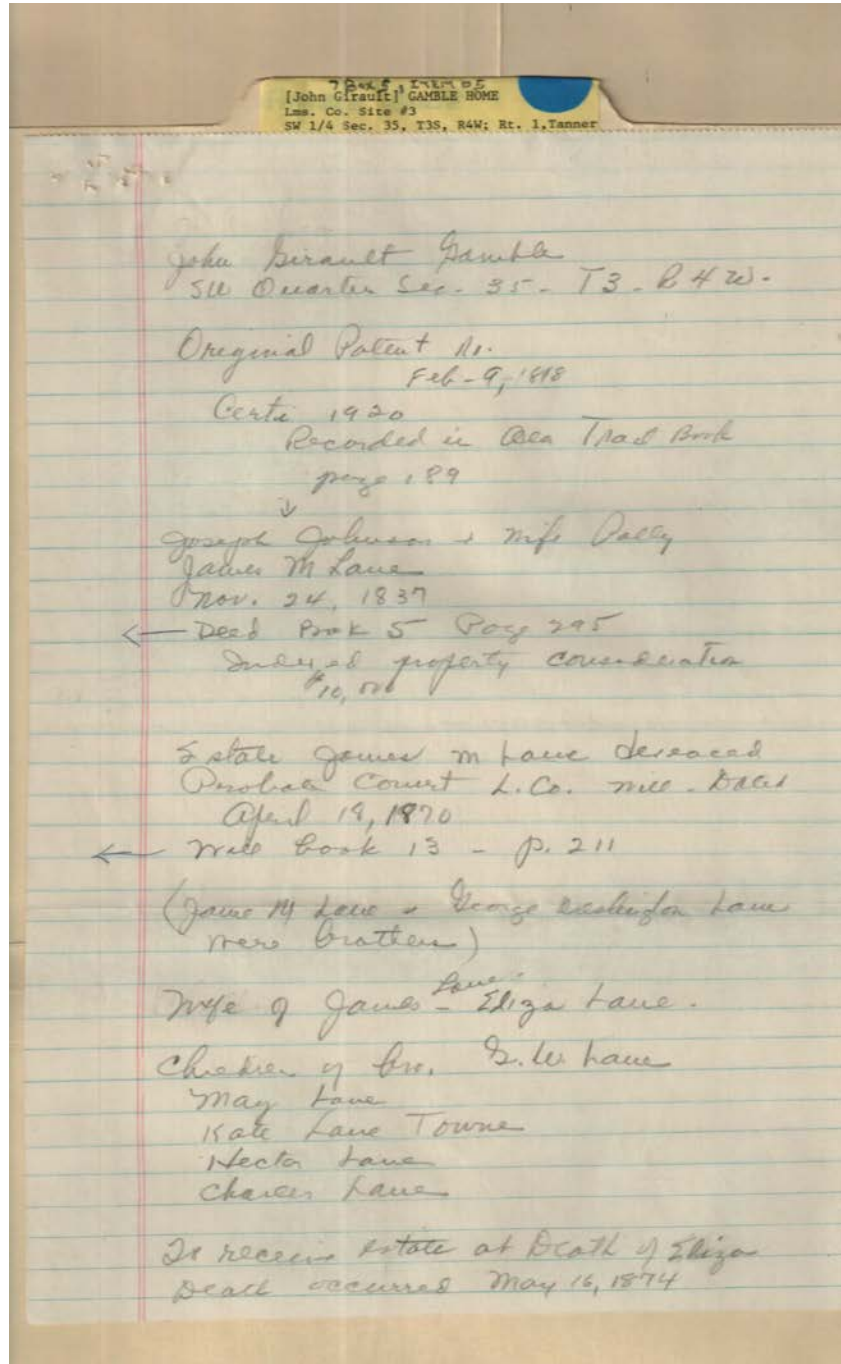 7 Box 5, ITEM 05
[John Girault] GAMBLE HOME
Lms. Co. Site #3
SW 1/4 Sec. 35, T3S, R4W; Rt. 1,Tanner
John Girault Gamble
SW Quarter Sec. 35 - T3 - R4W.
Original Patent No.
Feb - 9, 1818
Certi 1920
Recorded in Tract Book
page 189
↓
Joseph Johnson & wife
James M Lane
Nov. 24, 1837
← Deed Book 5 Page 295
property consideration
$10,000
Estate James M Lane deceased
Probate Court L. Co. Will - Dated
April 18, 1870
← Will book 13 - p. 211
(James M Lane & George Washington Lane
were brothers)
Wife of James Lane - Eliza Lane.
Children of bro. G. W. Lane
May Lane
Kate Lane Towne
Hector Lane
Charles Lane
To receive estate at Death of Eliza
Death occurred May 16, 1874